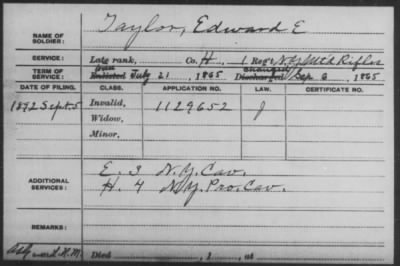 Taylor, Edward E
NAME OF SOLDIER:
SERVICE: Late rank, Co. H, 1 Reg't N.Y. Mt'd Rifles
TERM OF SERVICE: Enlisted July 21, 1865 Discharged Sep 6, 1865
DATE OF FILING. CLASS. APPLICATION NO. LAW. CERTIFICATE NO.
1892 Sept. 5 Invalid, 1129652 J
Widow,
Minor,
E. 3 N.Y. Cav.
ADDITIONAL SERVICES: H. 4 N.Y. Pro. Cav.
REMARKS:
Died